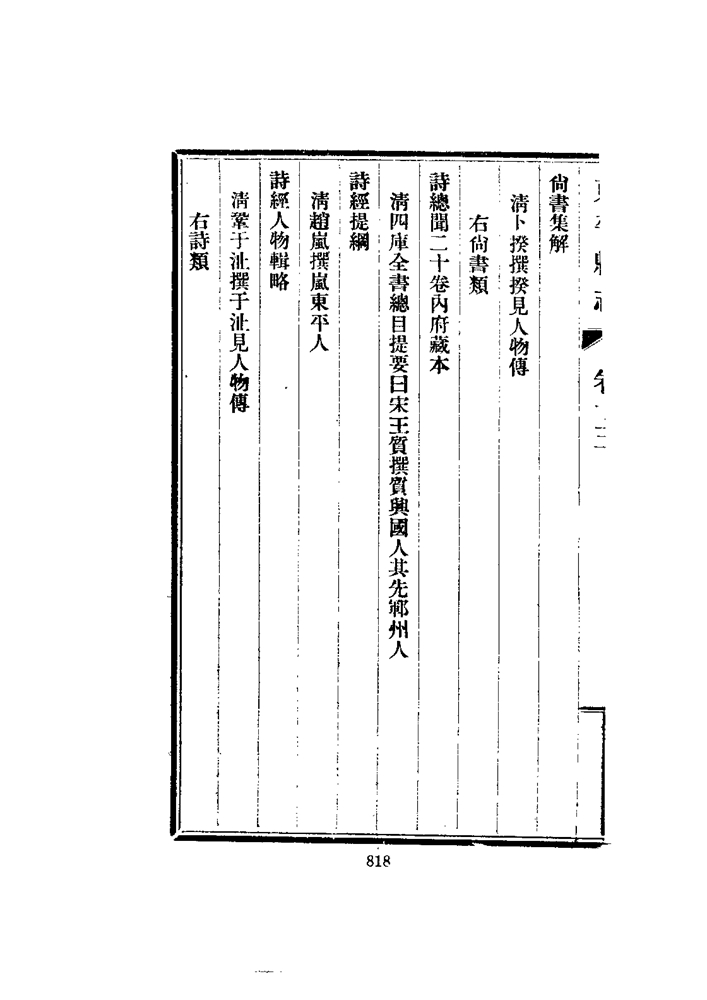 尙書集解
淸卜揆撰揆見人物傳
右尙書類
詩總聞二十卷內府藏本
淸四庫全書總目提要曰宋王質撰質興國人其先鄆州人
詩經提綱
淸趙嵐撰嵐東平人
詩經人物輯略
淸鞏于沚撰于沚見人物傳
右詩類
818